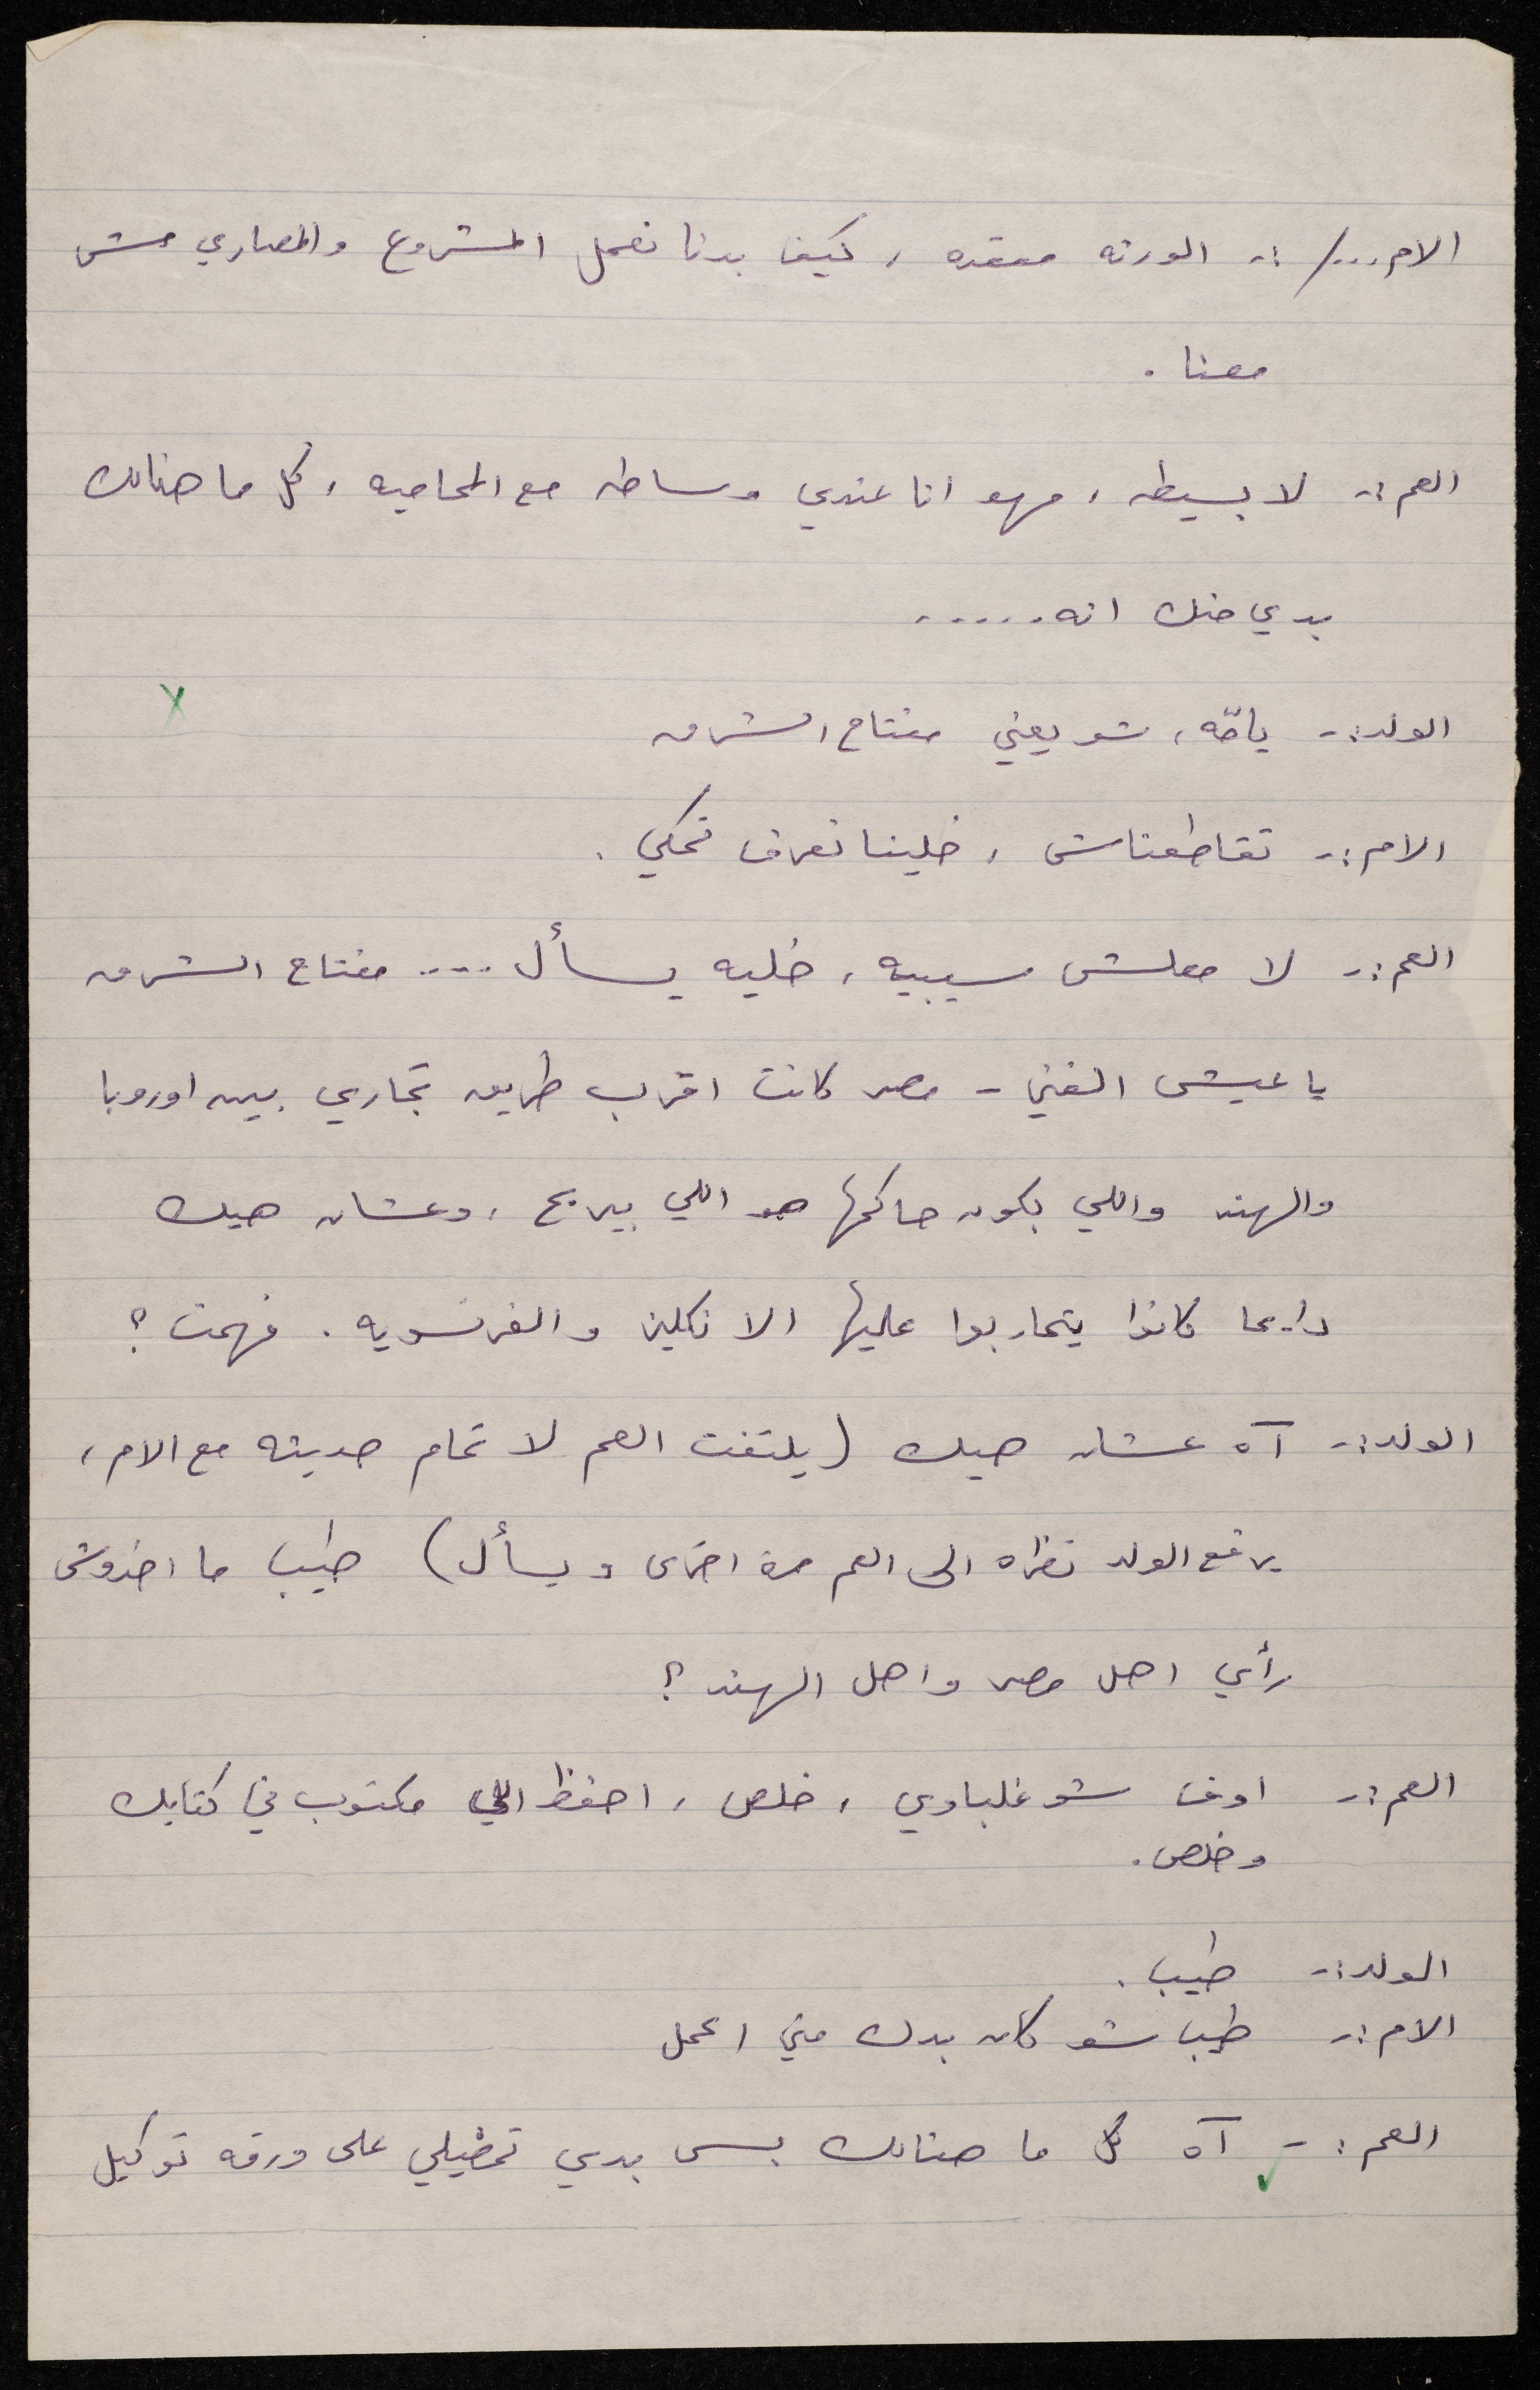 الام .../ :- الورثه معقده ، كيف بدنا نعمل المشروع والمصاري مش
معنا .
العم :- لا بسيطه ، مهو انا عندي وساطه مع المحاميه ، كل ما هنالك
بدي منك انه ......
الولد :- يامّه ، شو يعني مفتاح الشرق
الام :- تقاطعناش ، خلينا نعرف نحكي .
العم :- لا معلش سيبيه ، خليه يسأل .... مفتاح الشرق
يا عيشى الغني - مصر كانت اقرب طريق تجاري بين اوروبا
والهند واللي بكون حاكمها هو اللي بيربح ، وعشان هيك
دايما كانوا يتحاربوا عليها الانكليز والفرنسويه . فهمت ؟
الولد :- آه عشان هيك (يلتفت العم لاتمام حديثه مع الام ،
يرفع الولد نظراه الى العم مرة اخرى ويسأل) طيب ما اخذوش
رأي اهل مصر واهل الهند ؟
العم :- اوف شو غلباوي ، خلص ، احفظ اللي مكتوب في كتابك
وخلص .
الولد :- طيب .
الام :- طيب شو كان بدك مني اعمل
العم :- آه كل ما هنالك بس بدي تمضيلي على ورقه توكيل